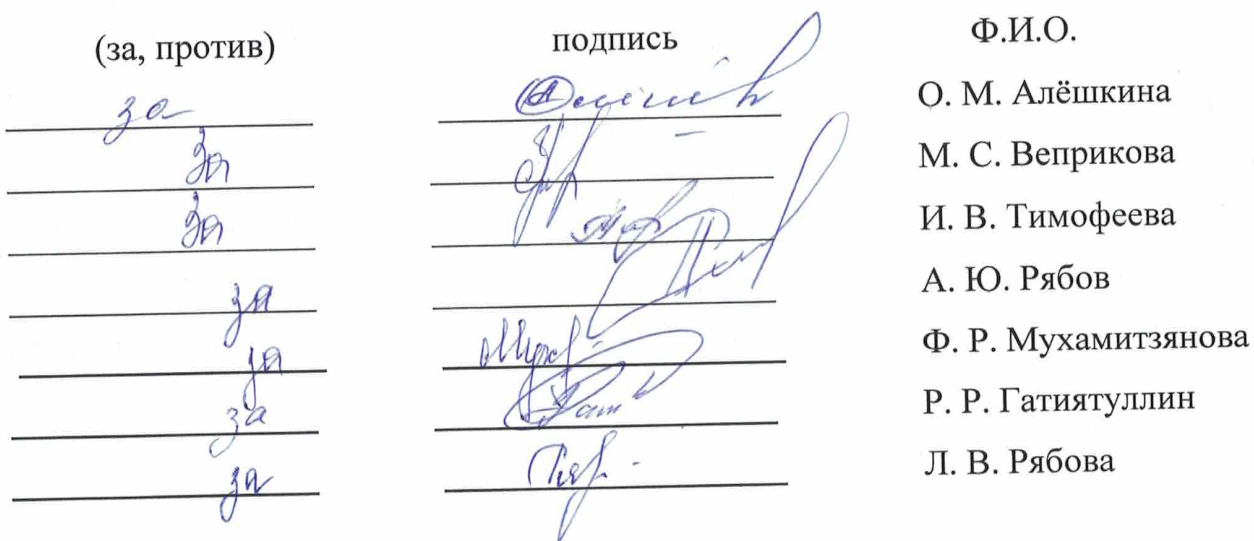 (за, против) подпись Ф.И.О.
за О. М. Алёшкина
За М. С. Веприкова
За И. В. Тимофеева
за А. Ю. Рябов
за Ф. Р. Мухамитзянова
за Р. Р. Гатиятуллин
за Л. В. Рябова